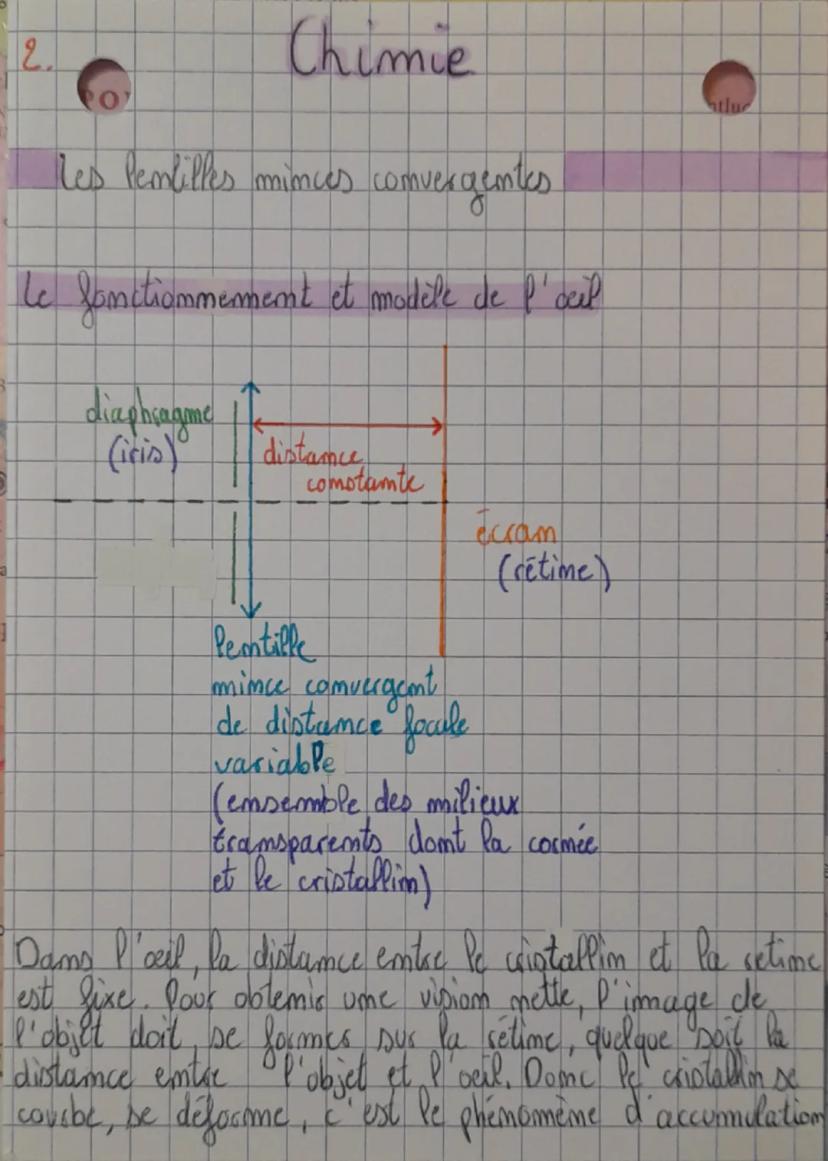 2.
Chimie
Les lentilles minces convergentes
Le fonctionnement et modèle de l'oeil
diaphragme
(iris)
distance
constante
écran
(rétine)
lentille
mince convergent
de distance focale
variable
(ensemble des milieux
transparents dont la cornée
et le cristallin)
Dans l'oeil, la distance entre le cristallin et la retine
est fixe. Pour obtenir une vision nette, l'image de
l'objet doit se former sur la rétine, quelque soit la
distance entre l'objet et l'oeil. Donc le cristallin se
courbe, se déforme, c'est le phénomème d'accumulation